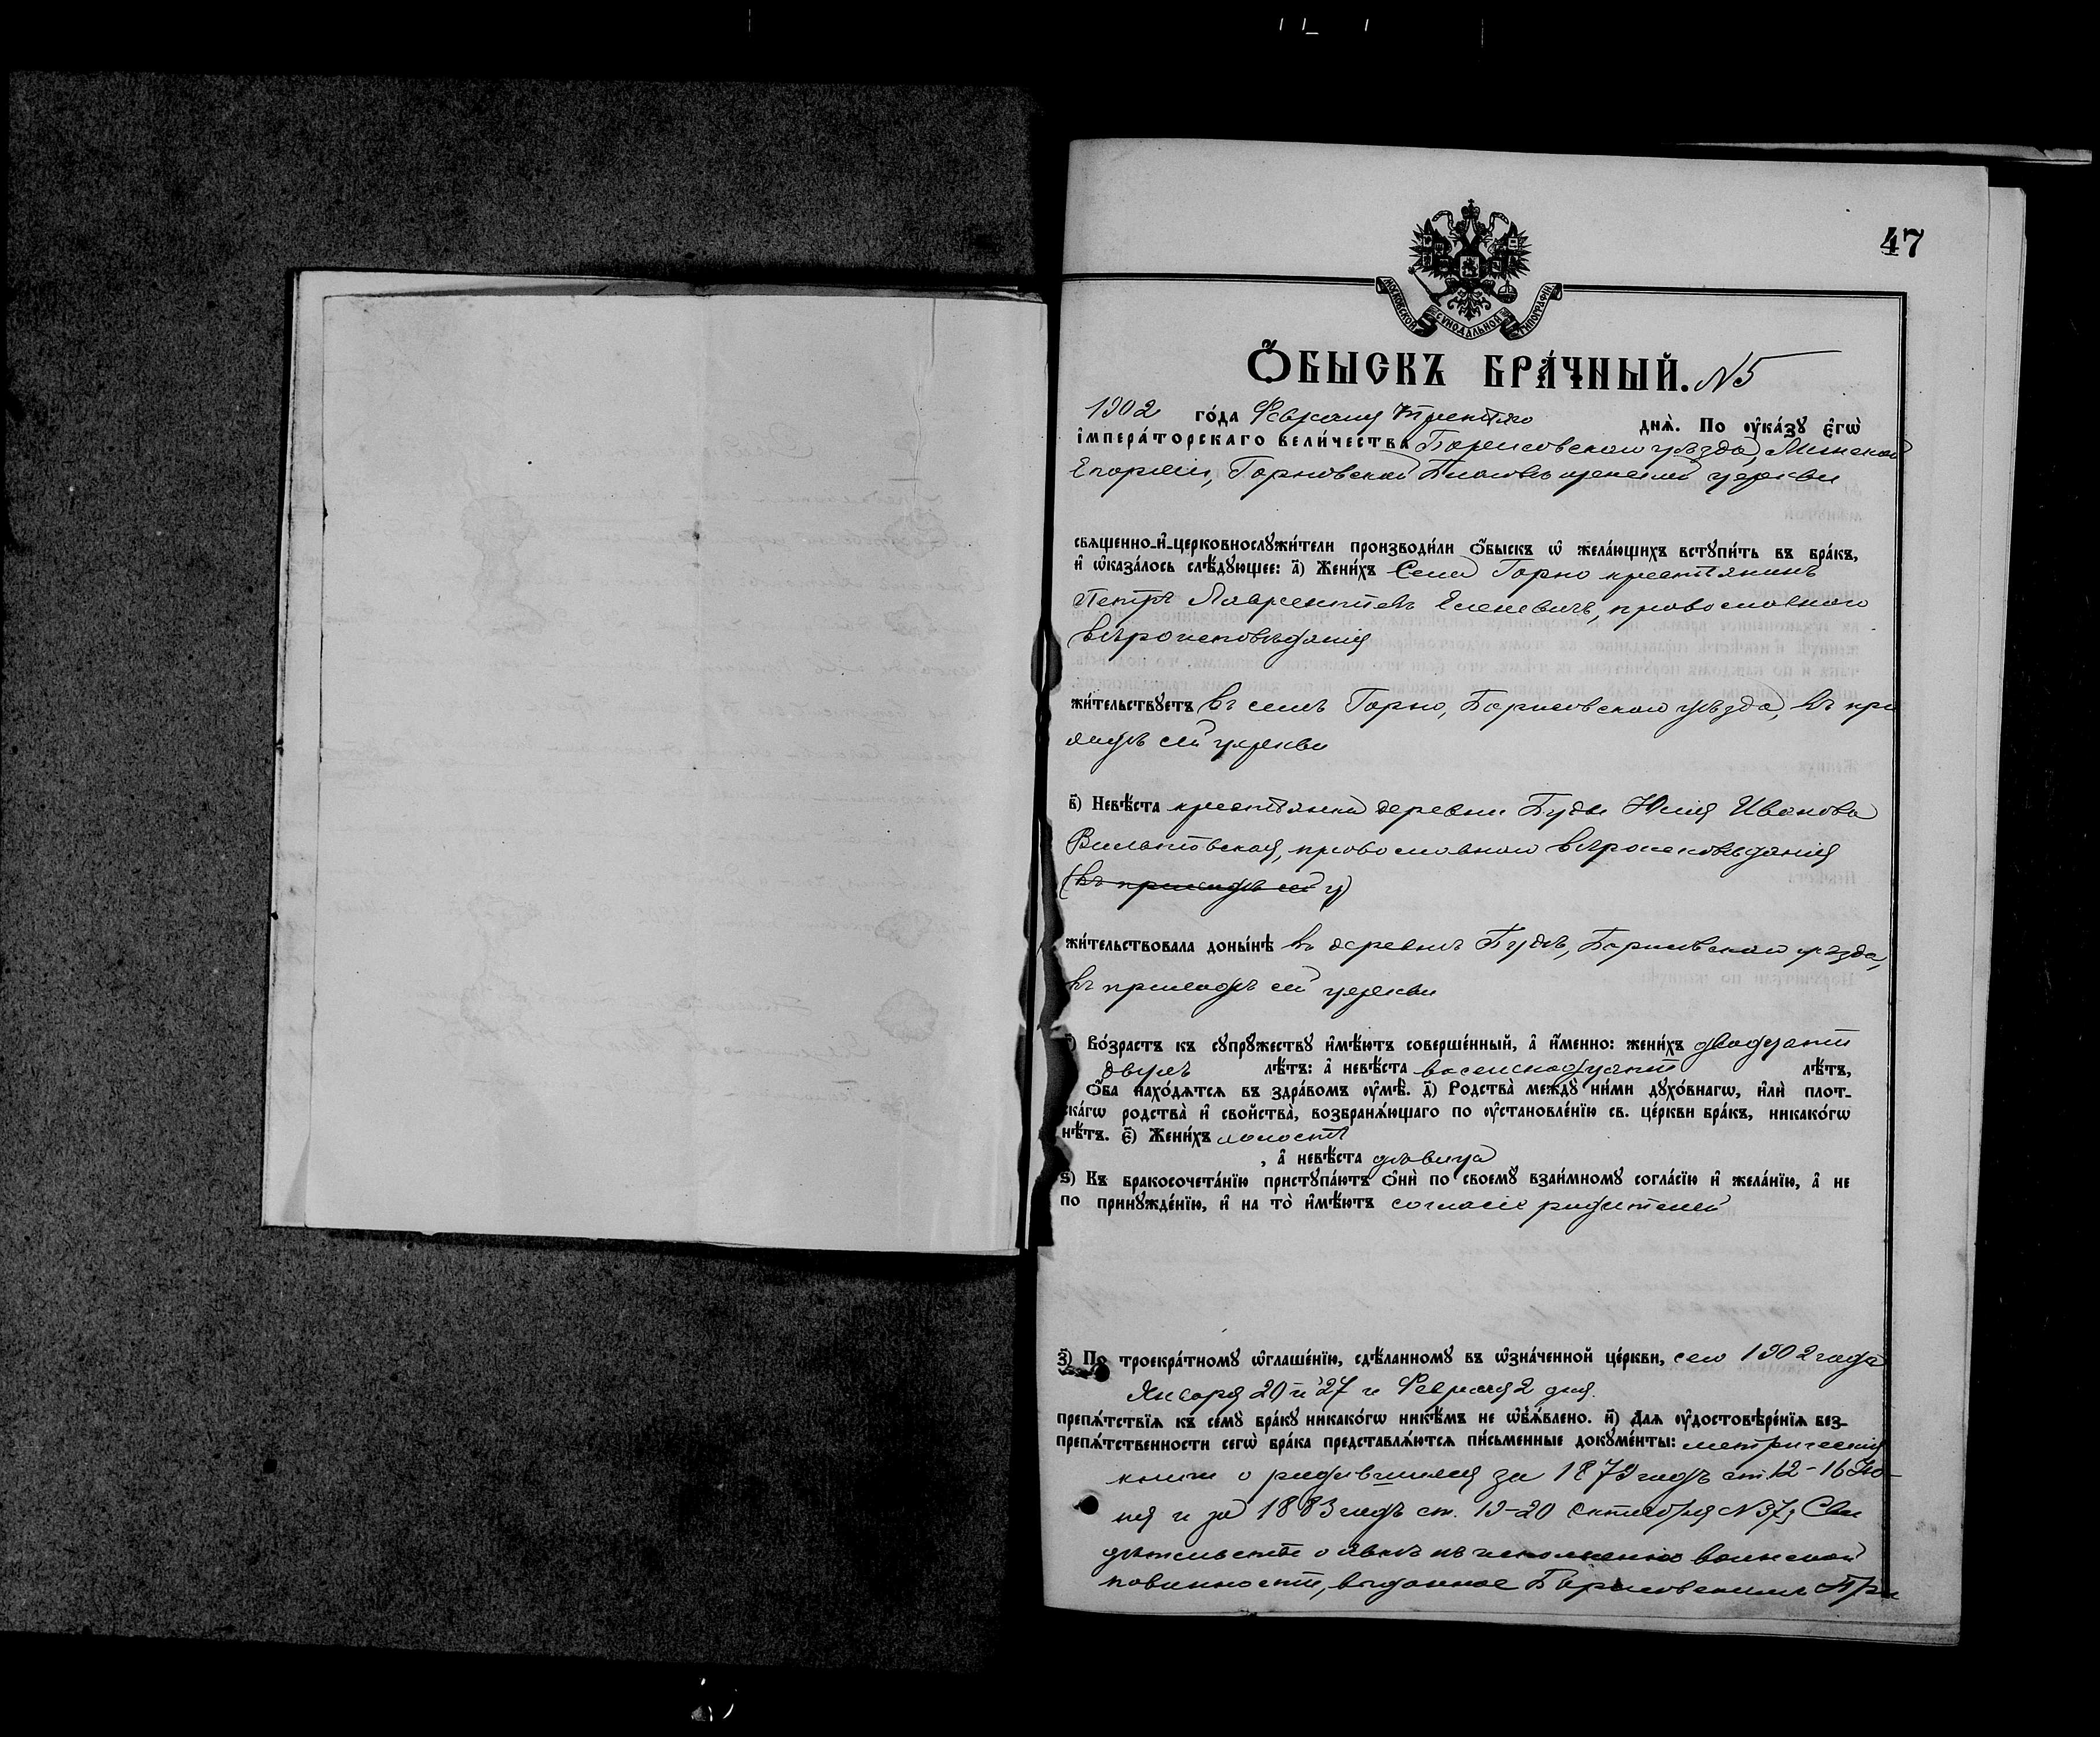 47
МОСКОВСКОЙ СѴНОДАЛЬНОЙ ТИПОГРАФІИ
Ѻ҆БЫСКЪ БРА́ЧНЫЙ. N 5
1902 го́да Февраля третьяго днѧ̀. По ᲂу҆ка́зꙋ є҆гѡ̀
і҆мпера́торскагѡ вели́чества Борисовскаго уѣзда, Минской
Епархіи, Горновской церкви
свѧщенно-и҆-церковнослꙋжи́тели производи́ли ѻ҆́быскъ ѡ҆ жела́ющихъ встꙋпи́ть въ бра́къ,
и҆ ѡ҆каза́лось слѣ́дꙋющее: а҃) Жени́хъ Села Горно крестьянинъ
Петръ Лаврентьевъ Еленевичъ, православнаго
вѣроисповѣданія
жи́тельствꙋетъ въ селѣ Горно, Борисовскаго уѣзда, въ при
ходѣ сей церкви
в҃) Невѣ́ста крестьянка деревни Буды Юлія Иванова
православнаго вѣроисповѣданія
(въ приходѣ сей ц)
жи́тельствовала доны́нѣ въ деревнѣ Будѣ, Борисовскаго уѣзда,
въ приходѣ сей церкви
г҃) Во́зрастъ къ сꙋпрꙋ́жествꙋ и҆мѣ́ютъ соверше́нный, а҆ и҆́менно: жени́хъ двадцати
двухъ лѣ́тъ: а҆ невѣ́ста восемнадцати лѣ́тъ,
ѻ҆́ба нахо́дѧтсѧ въ здра́вомъ ᲂу҆мѣ̀. д҃) Родства̀ междꙋ̀ ни́ми дꙋхо́внагѡ, и҆лѝ плот-
ска́гѡ родства̀ и҆ свойства̀, возбранѧ́ющаго по ᲂу҆становле́нїю св. це́ркви бра́къ, никако́гѡ
нѣ́тъ. є҃) Жени́хъ холостъ
, а҆ невѣ́ста дѣвица
ѕ҃) Къ бракосочета́нїю пристꙋпа́ютъ ѻ҆нѝ по своемꙋ̀ взаи́мномꙋ согла́сїю и҆ жела́нїю, а҆ не
по принꙋжде́нїю, и҆ на то̀ и҆мѣ́ютъ согласіе родителей
з҃) По троекра́тномꙋ ѡ҆глаше́нїю, сдѣ́ланномꙋ въ ѡ҆зна́ченной це́ркви, сего 1902 года
Января 20, и 27 и Февраля 2 дня.
препѧ́тствїѧ къ семꙋ̀ бра́кꙋ никако́гѡ никѣ́мъ не ѡ҆б̾ѧ́влено. и҃) Длѧ ᲂу҆достовѣре́нїѧ без-
препѧ́тственности сегѡ̀ бра́ка представлѧ́ютсѧ пи́сьменные докꙋме́нты: метрическія
книги о родившихся за 1879 годъ ст 12-16 Iю-
ня и за 1883 годъ ст. 19-20 Октября N 37, Сви
дѣтельство о явкѣ къ исполненію воинской
повинности, выданное Борисовскимъ При